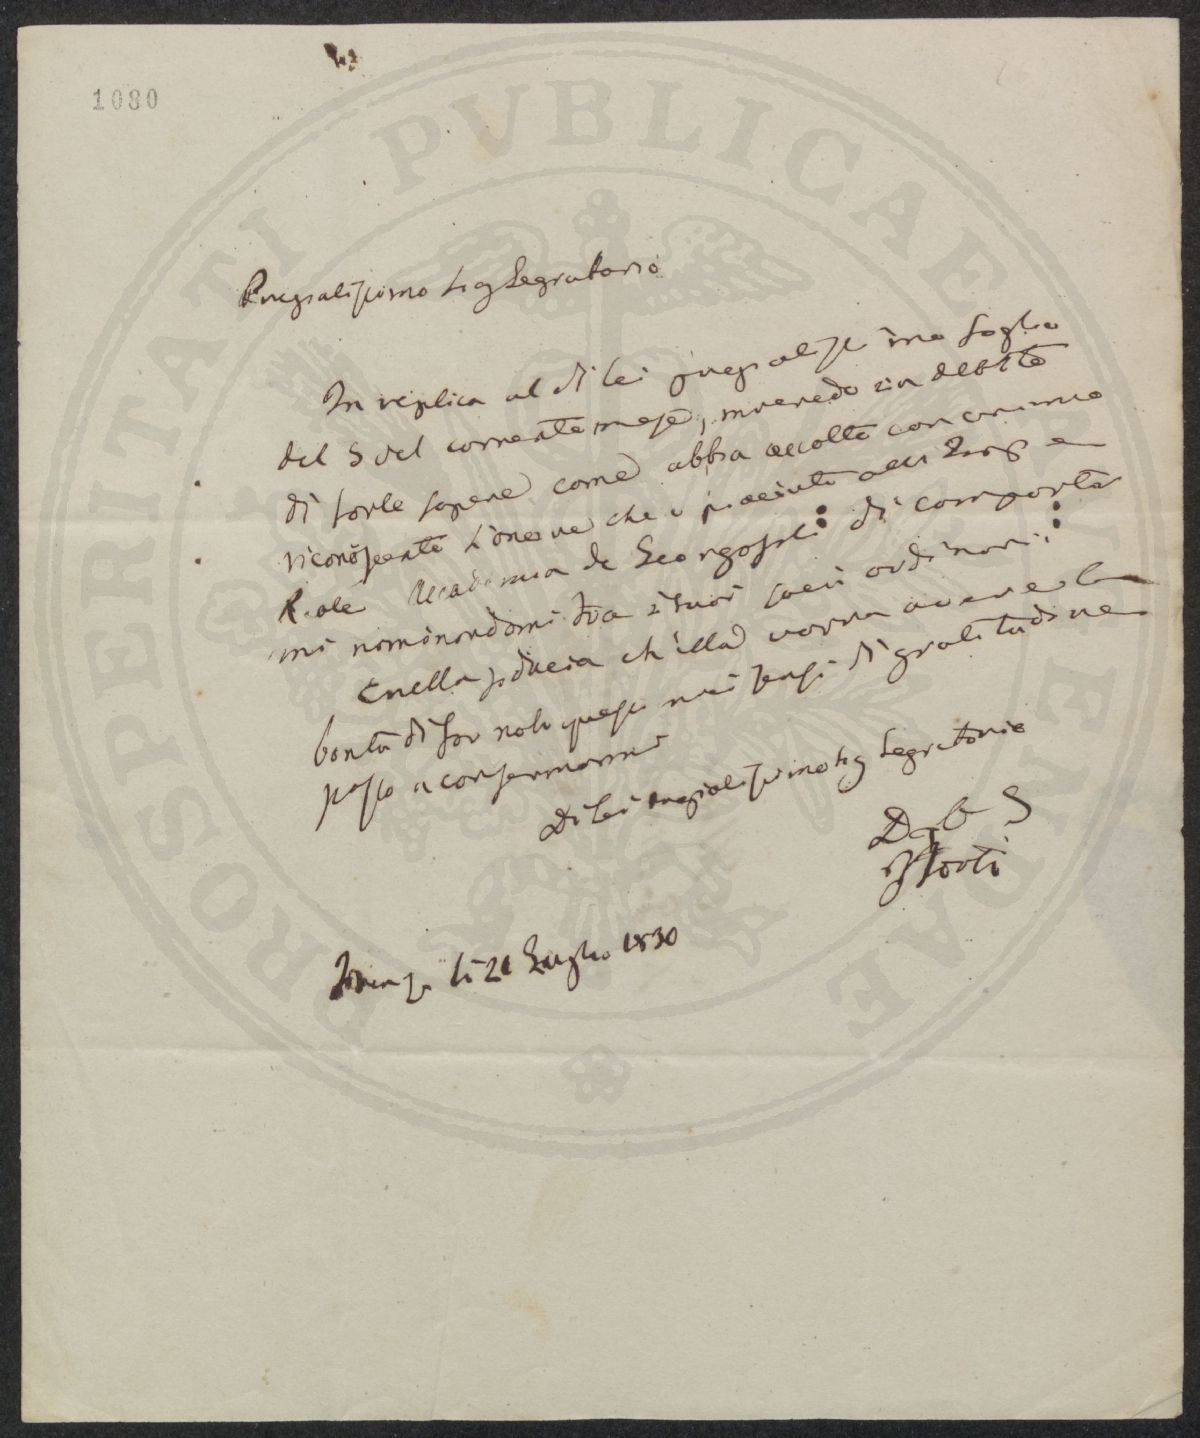 1080
PROSPERITATI PVBLICAE AVGENDAE
Pregiatissimo Sig Segretario
In replica al di lei pregiatissimo foglio
del 5 del corrente mese, mi credo in debito
di farle sapere come abbia accolto con animo
riconoscente l'onore che è piaciuto alla
Reale Accademia de Georgofili di comparte
mi nominandomi tra i suoi socii ordinari:
E nella fiducia ch'ella vorrà avere la
bontà di far noti questi miei sensi di gratitudine
passo a confermarmi
Di lei pregiatissimo Sig Segretario
li 21 Luglio 1830